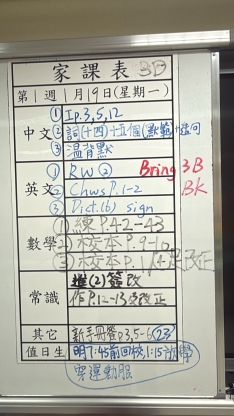 家課表 3D
第1週1月19日(星期一)
中文 ① Ip.3,5,12
② 詞(十四)+五個(默範)+造句
③ 温背默
英文 ① RW ②
② Chws P.1-2
③ Dict.(6) sign
Bring 3B
BK
數學 ① 練P.42-43
② 校本P.9-10
③ 校本P.1
常識 進(2)簽改
作P.12-13改正
其它 新手冊餐p3,5-6
值日生 明7:45前回校,1:15放學
穿運動服